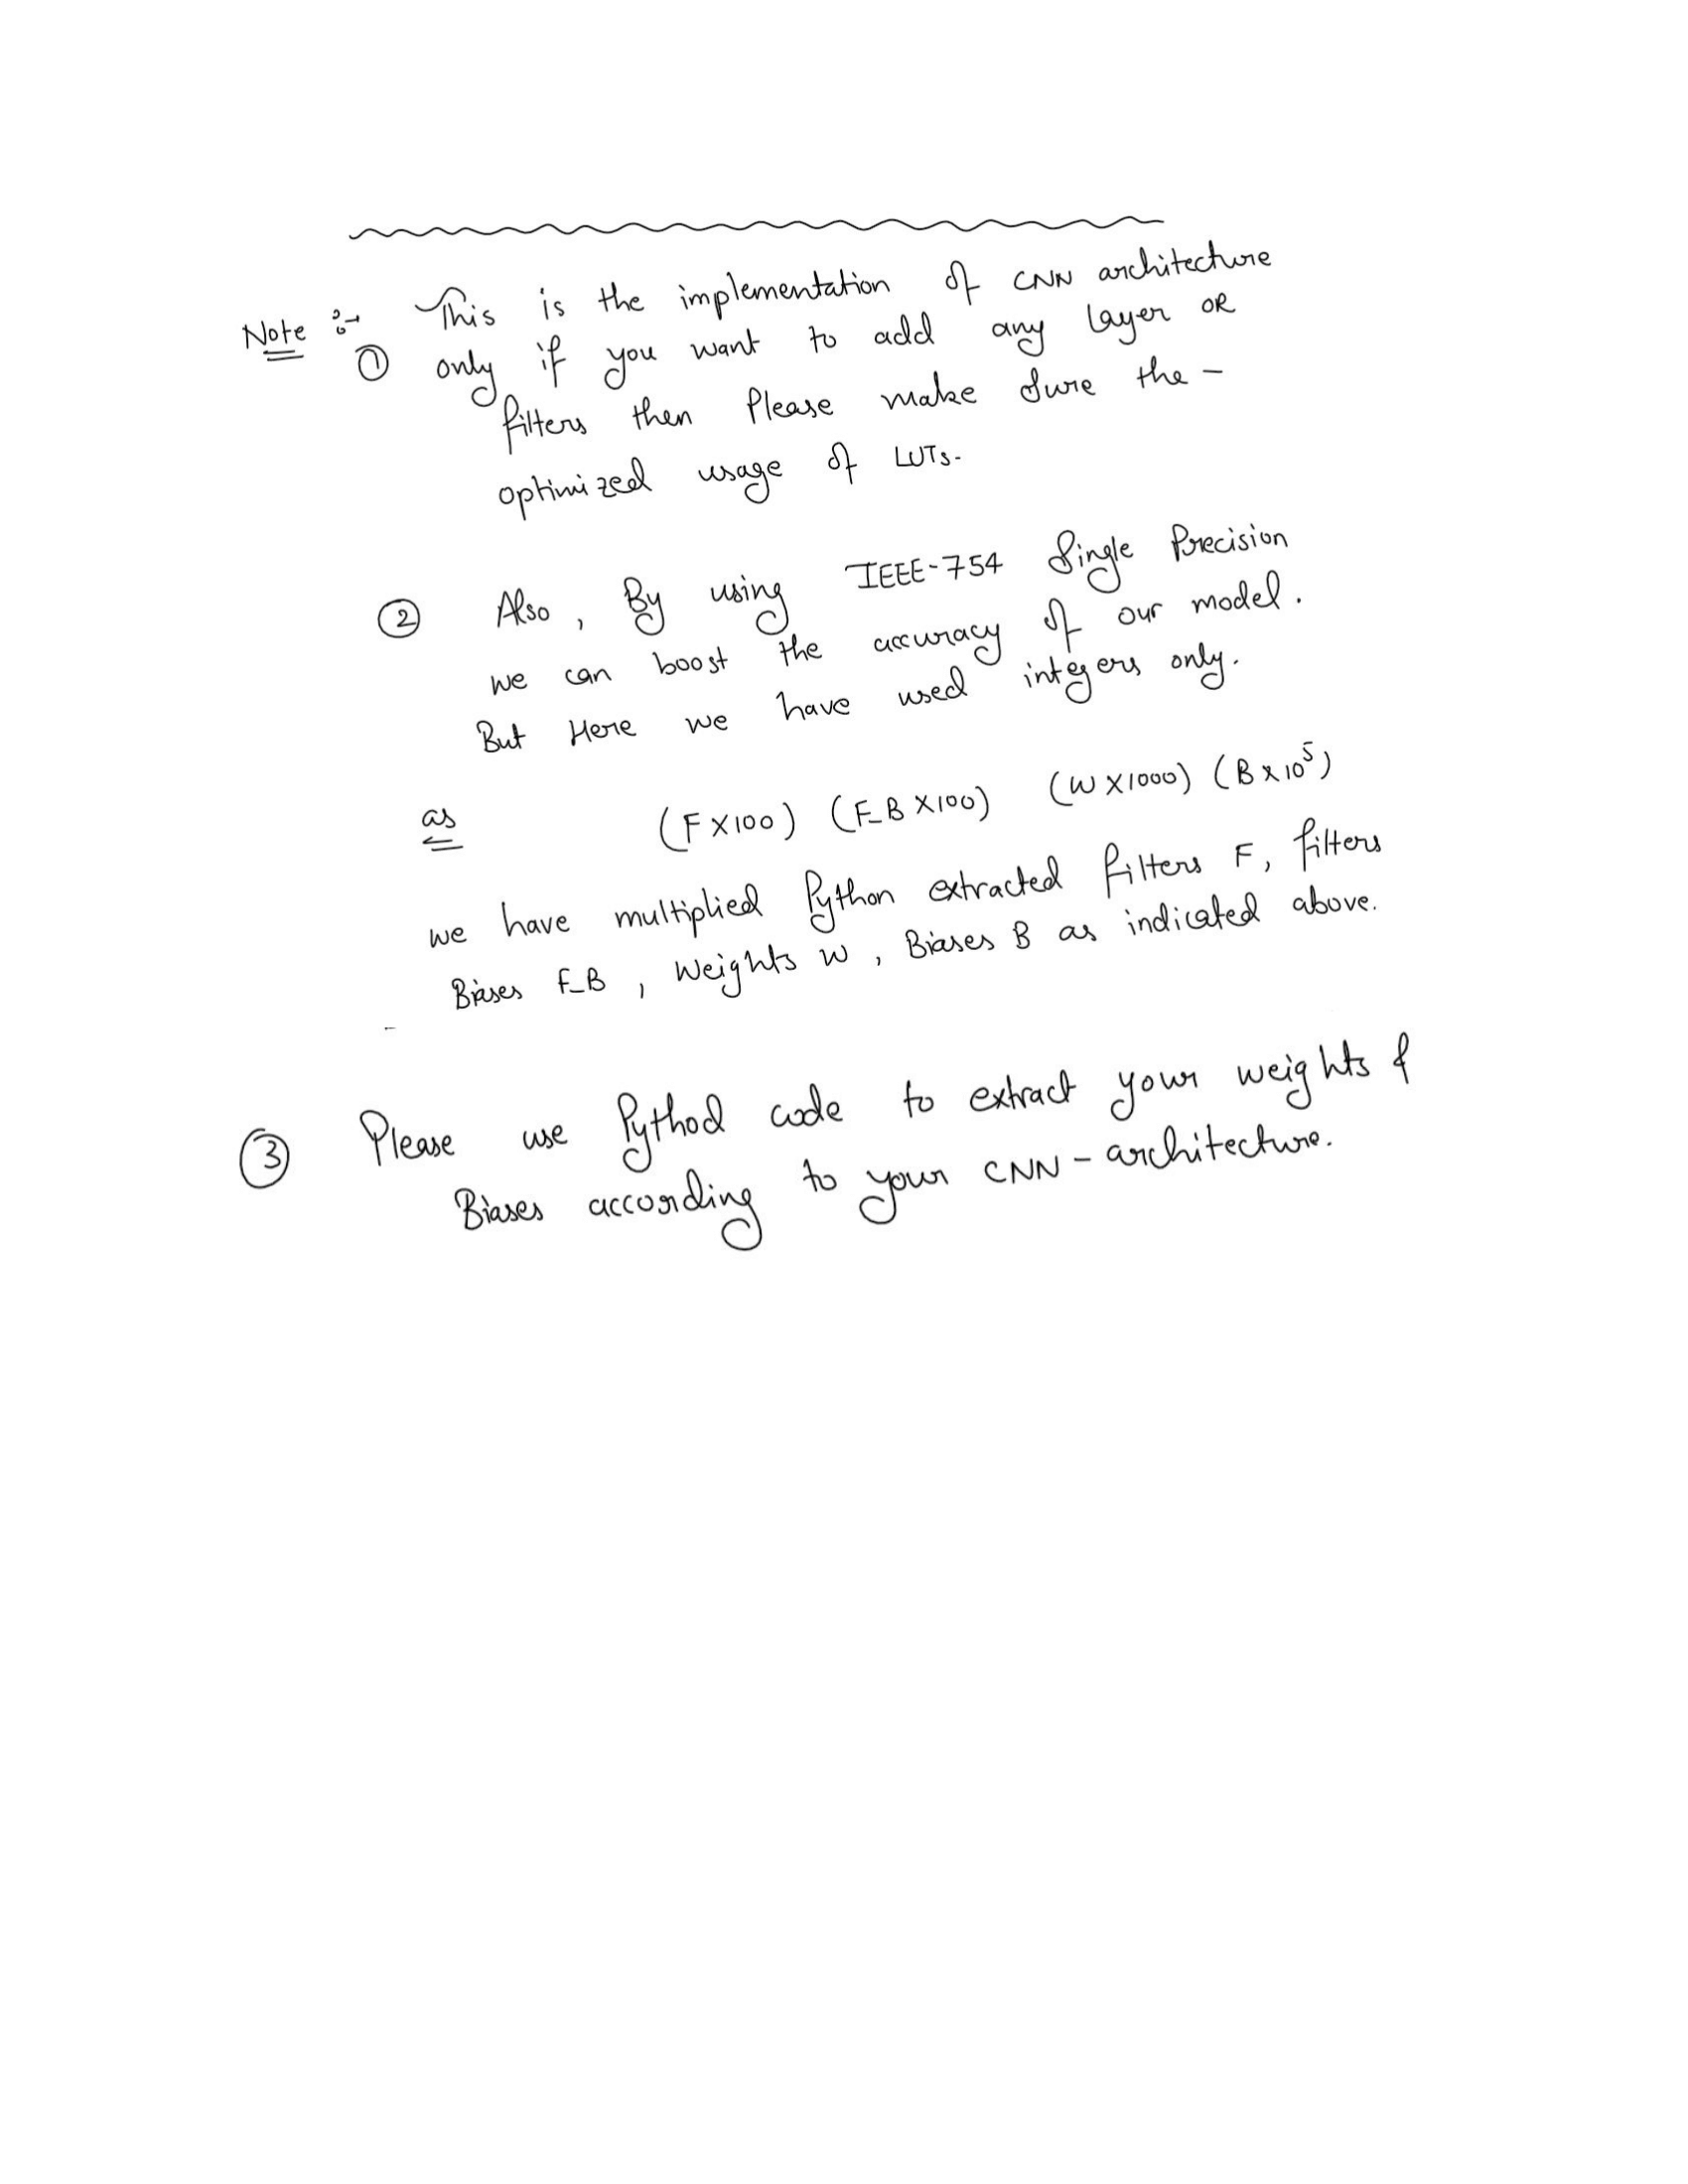 Note :- This is the implementation of CNN architecture
① only if you want to add any layer OR
filters then Please make sure the -
optimized usage of LUTs.
② Also, By using IEEE-754 Single Precision
we can boost the accuracy of our model.
But Here we have used integers only.
as (F X100) (F_B X100) (W X1000) (B x 10⁵)
we have multiplied Python extracted filters F, filters
Biases F_B, Weights W, Biases B as indicated above.
③ Please use Pythod code to extract your weights &
Biases according to your CNN - architecture.